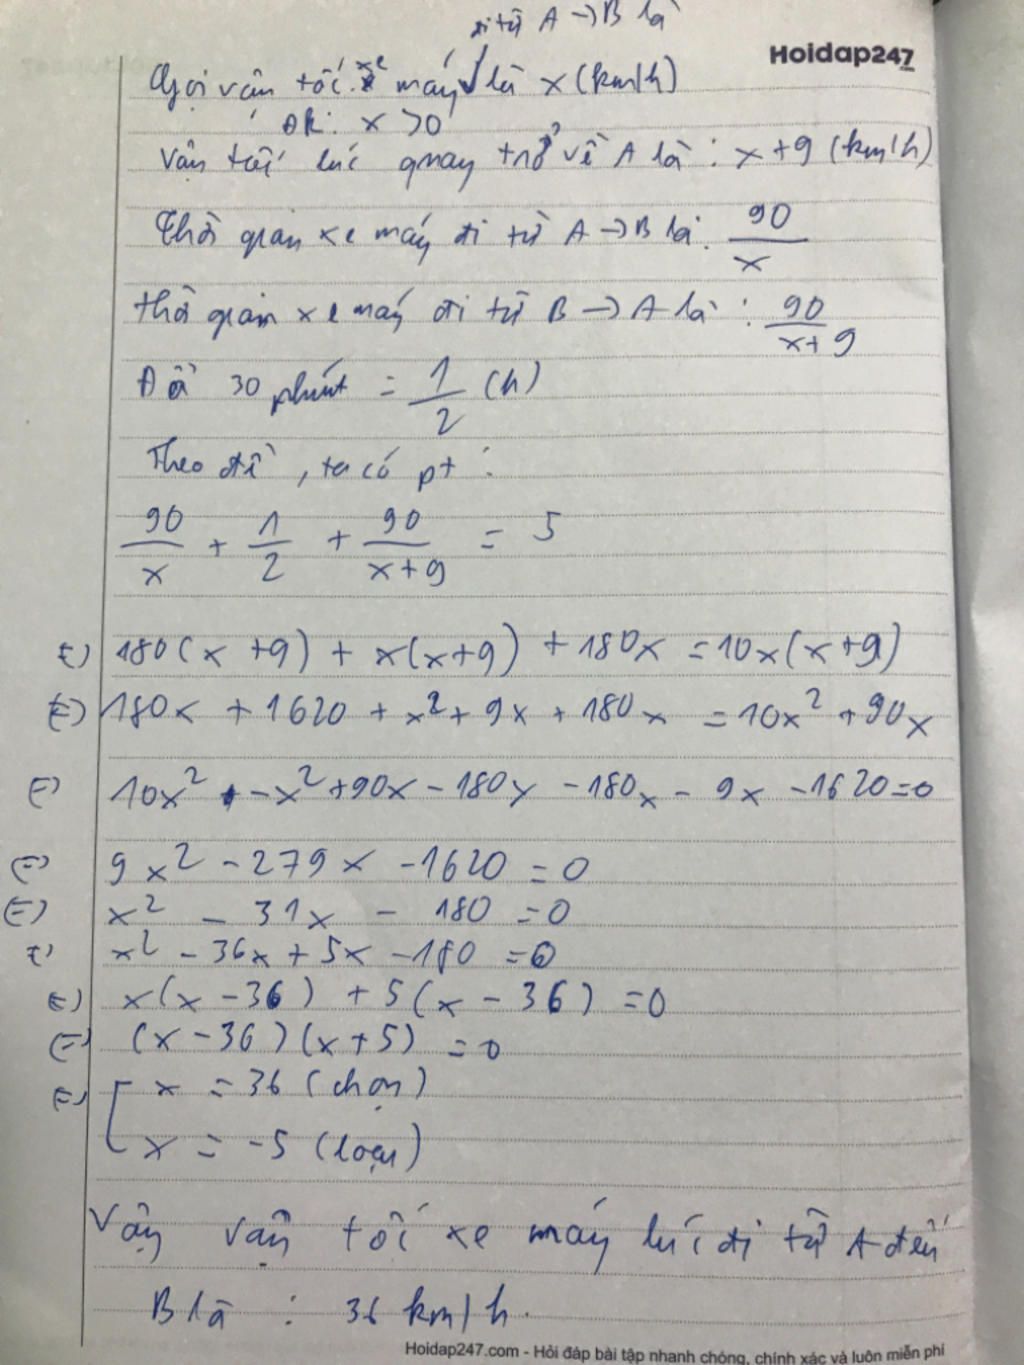 đi từ A → B là
Hoidap247
Gọi vận tốc xe máy là x (km/h)
ĐK: x > 0
Vận tốc lúc quay trở về A là : x + 9 (km/h)
Thời gian xe máy đi từ A → B là : 90/x
Thời gian xe máy đi từ B → A là : 90/(x+9)
Đổi 30 phút = 1/2 (h)
Theo đề, ta có pt :
90/x + 1/2 + 90/(x+9) = 5
(=) 180(x+9) + x(x+9) + 180x = 10x(x+9)
(=) 180x + 1620 + x² + 9x + 180x = 10x² + 90x
(=) 10x² - x² + 90x - 180x - 180x - 9x - 1620 = 0
(=) 9x² - 279x - 1620 = 0
(=) x² - 31x - 180 = 0
(=) x² - 36x + 5x - 180 = 0
(=) x(x - 36) + 5(x - 36) = 0
(=) (x - 36)(x + 5) = 0
(=) [ x = 36 (chọn)
x = -5 (loại)
Vậy vận tốc xe máy lúc đi từ A đến
B là : 36 km/h.
Hoidap247.com - Hỏi đáp bài tập nhanh chóng, chính xác và luôn miễn phí